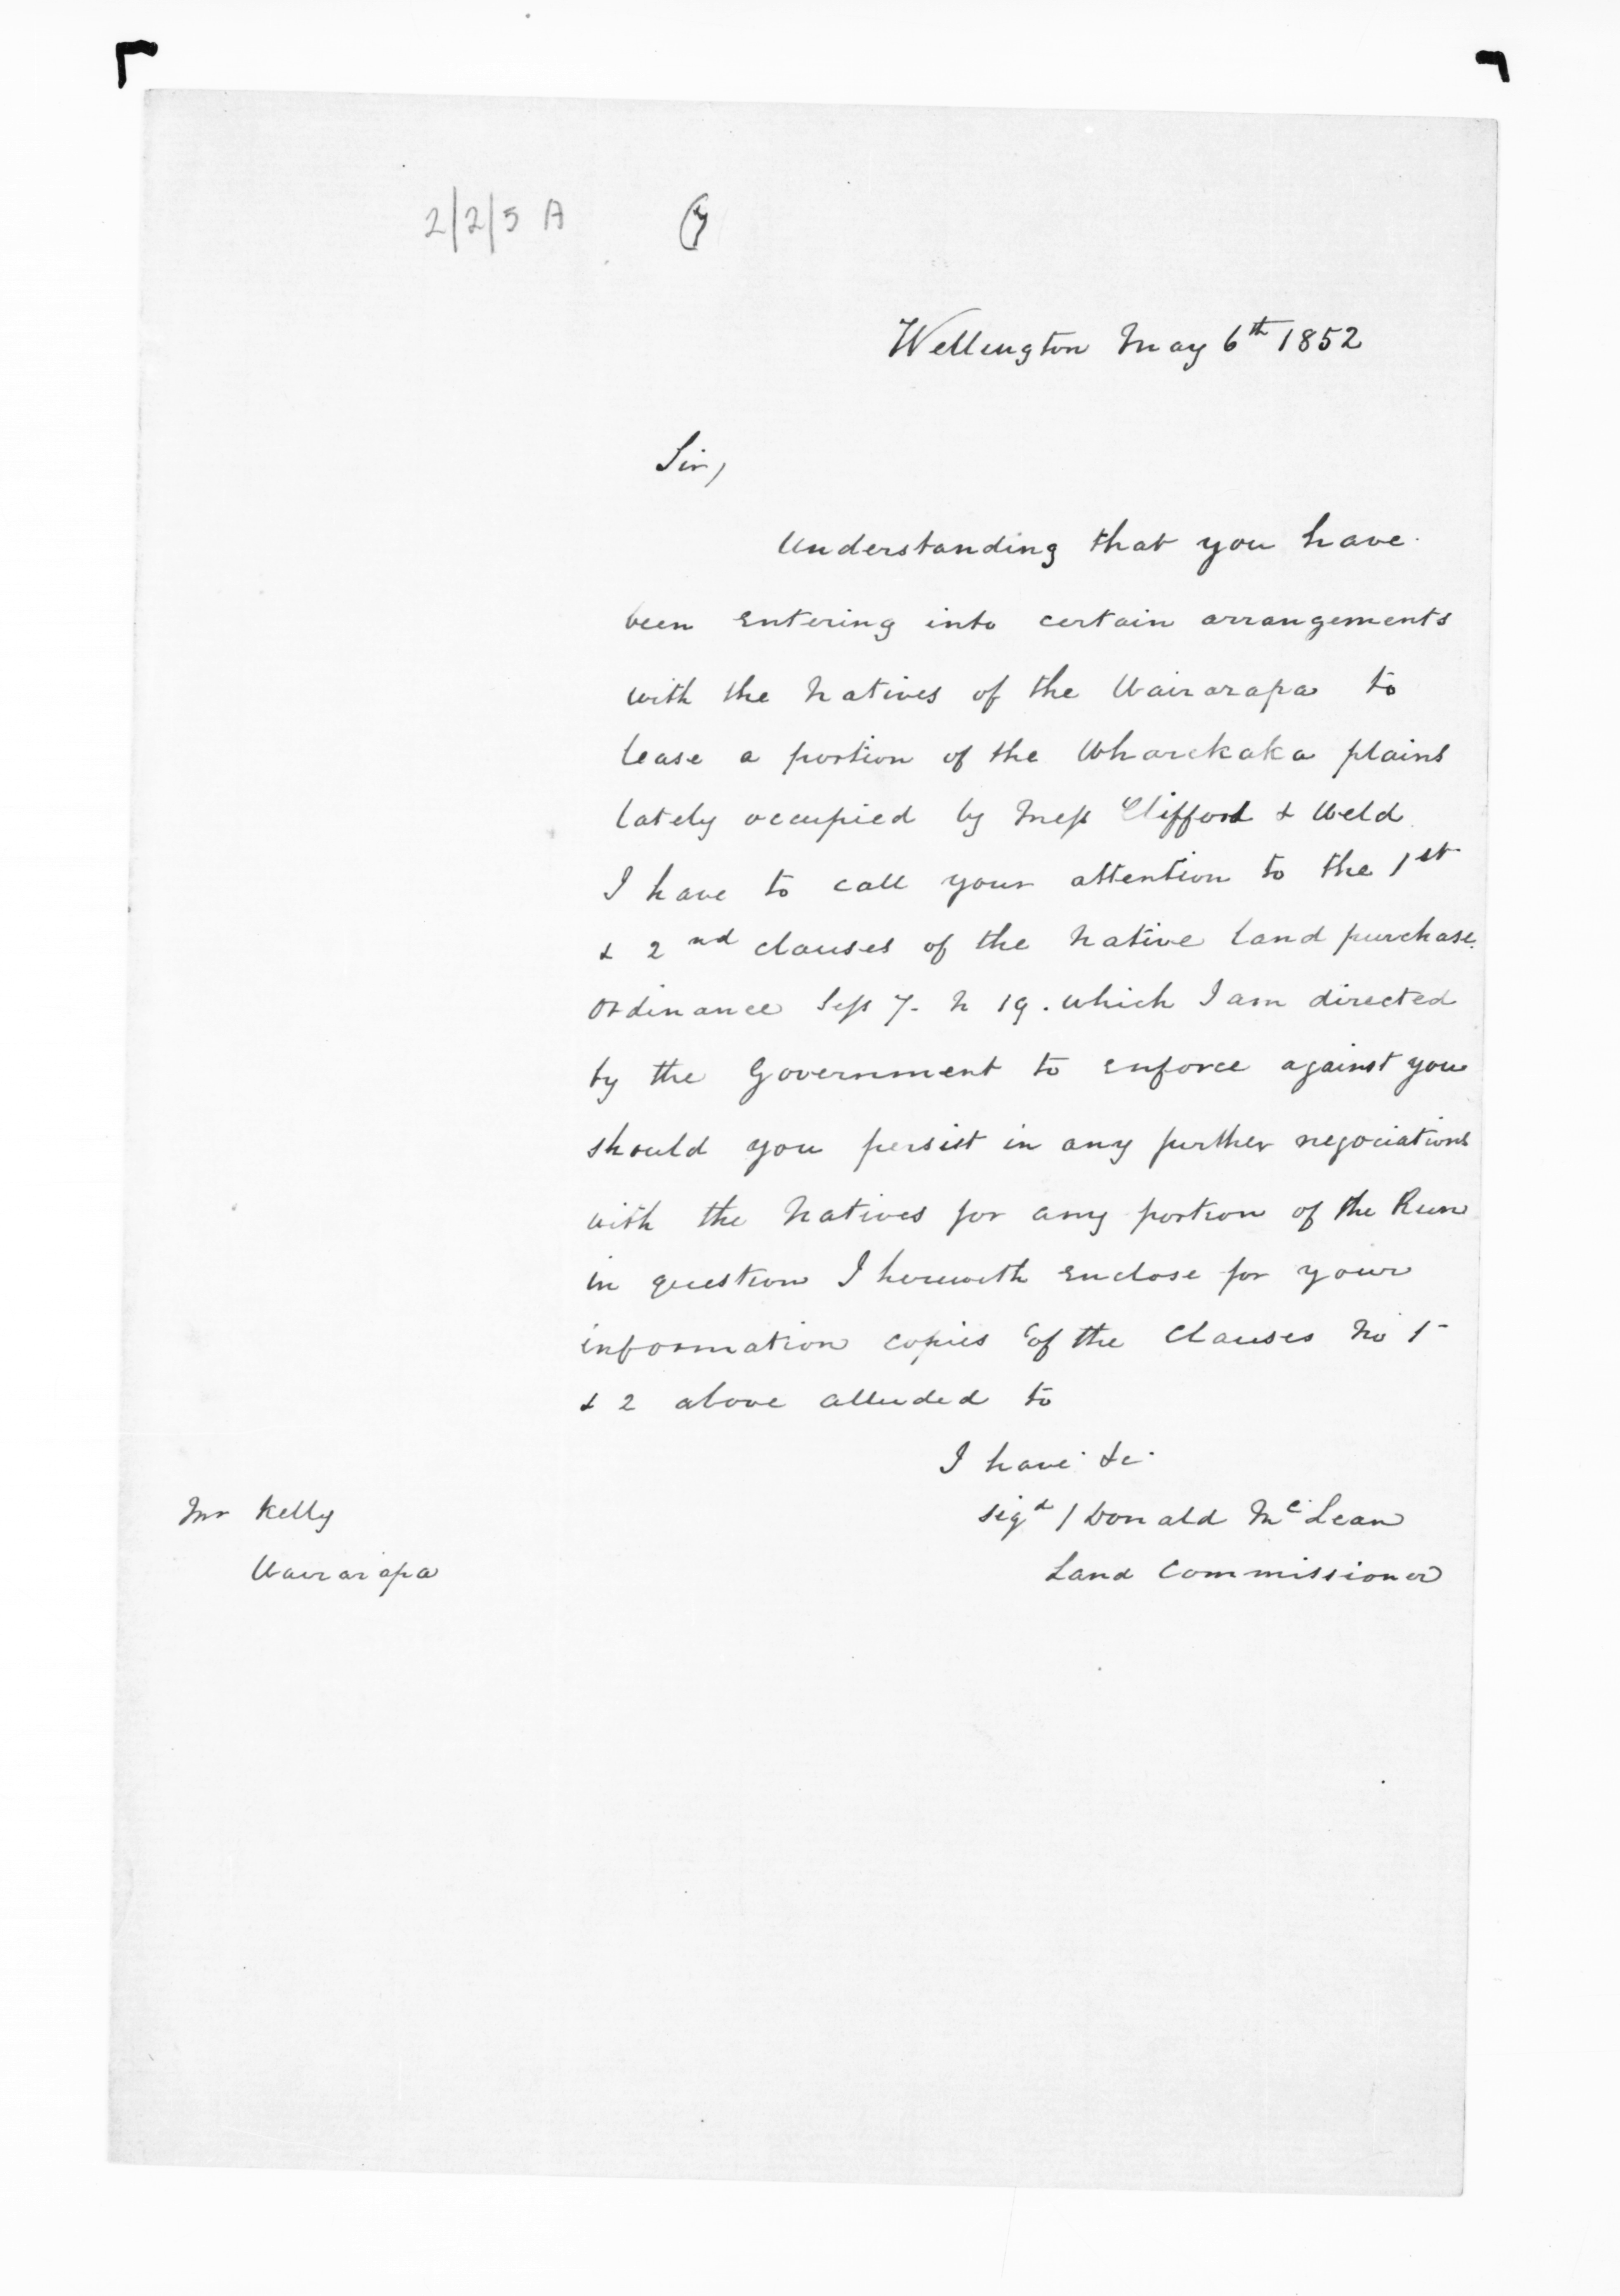 2/2/5 A (7
Wellington May 6th 1852
Sir,
Understanding that you have
been entering into certain arrangements
with the Natives of the Wairarapa to
lease a portion of the Wharekaka plains
lately occupied by Mess Clifford & Weld
I have to call your attention to the 1st
& 2nd clauses of the Native land purchase
Ordinance Sess 7. N 19. which I am directed
by the Government to enforce against you
should you persist in any further negociations
with the Natives for any portion of the Run
in question I herewith enclose for your
information copies of the Clauses No 1
& 2 above alluded to
I have &c
sigd / Donald McLean
Land Commissioner
Mr Kelly
Wairarapa